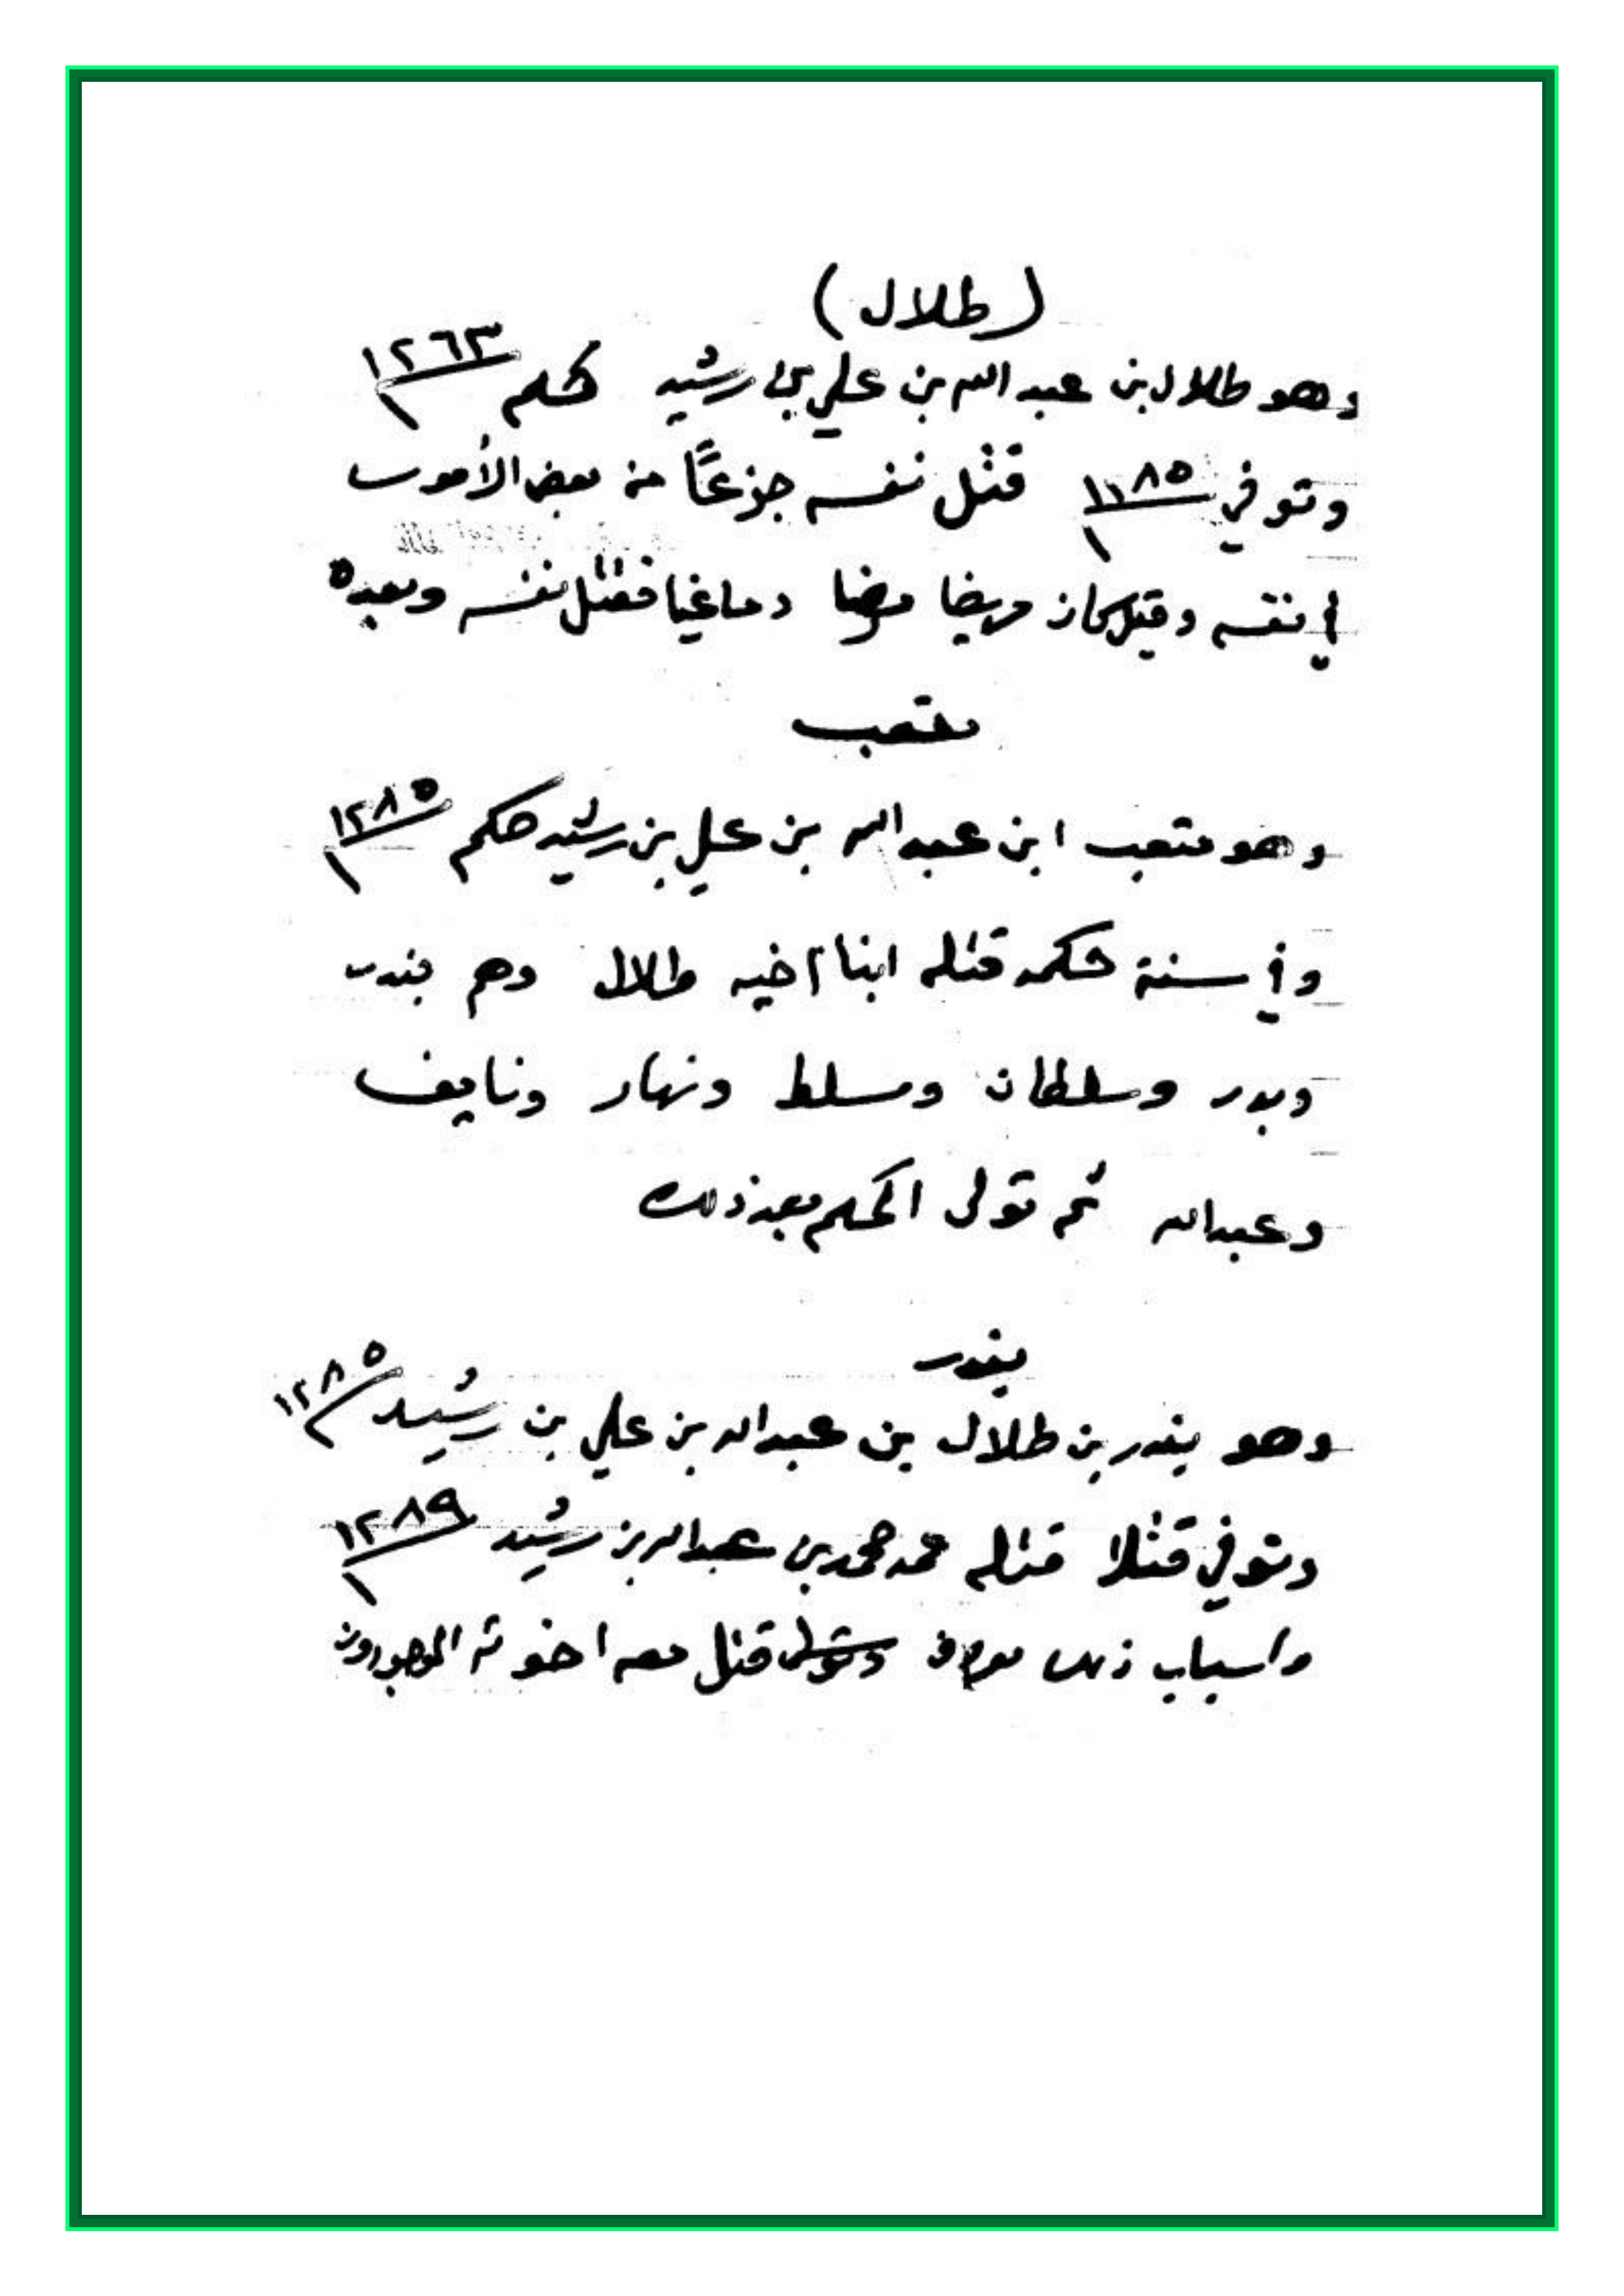 (طلال)
وهو طلال بن عبد الله بن علي بن رشيد حكم ١٢٦٣
وتوفي ١١٨٥ قتل نفسه جزعًا من بعض الأمور
في نفسه وقيل كان مريضا مرضا دماغيا فقتل نفسه وبعده
متعب
وهو متعب ابن عبد الله بن علي بن رشيد حكم ١٢٨٥
وفي سنة حكمه قتله ابناء اخيه طلال وهم بندر
وبدر وسلطان ومسلط ونهار ونايف
وعبدالله ثم تولى الحكم بعد ذلك
بندر
وهو بندر بن طلال بن عبدالله بن علي بن رشيد ١٢٨٥
وتوفي قتلا قتله عمه محمد بن عبدالله بن رشيد ١٢٨٩
واسباب ذلك وتولى قتل معه اخوته الموجودون